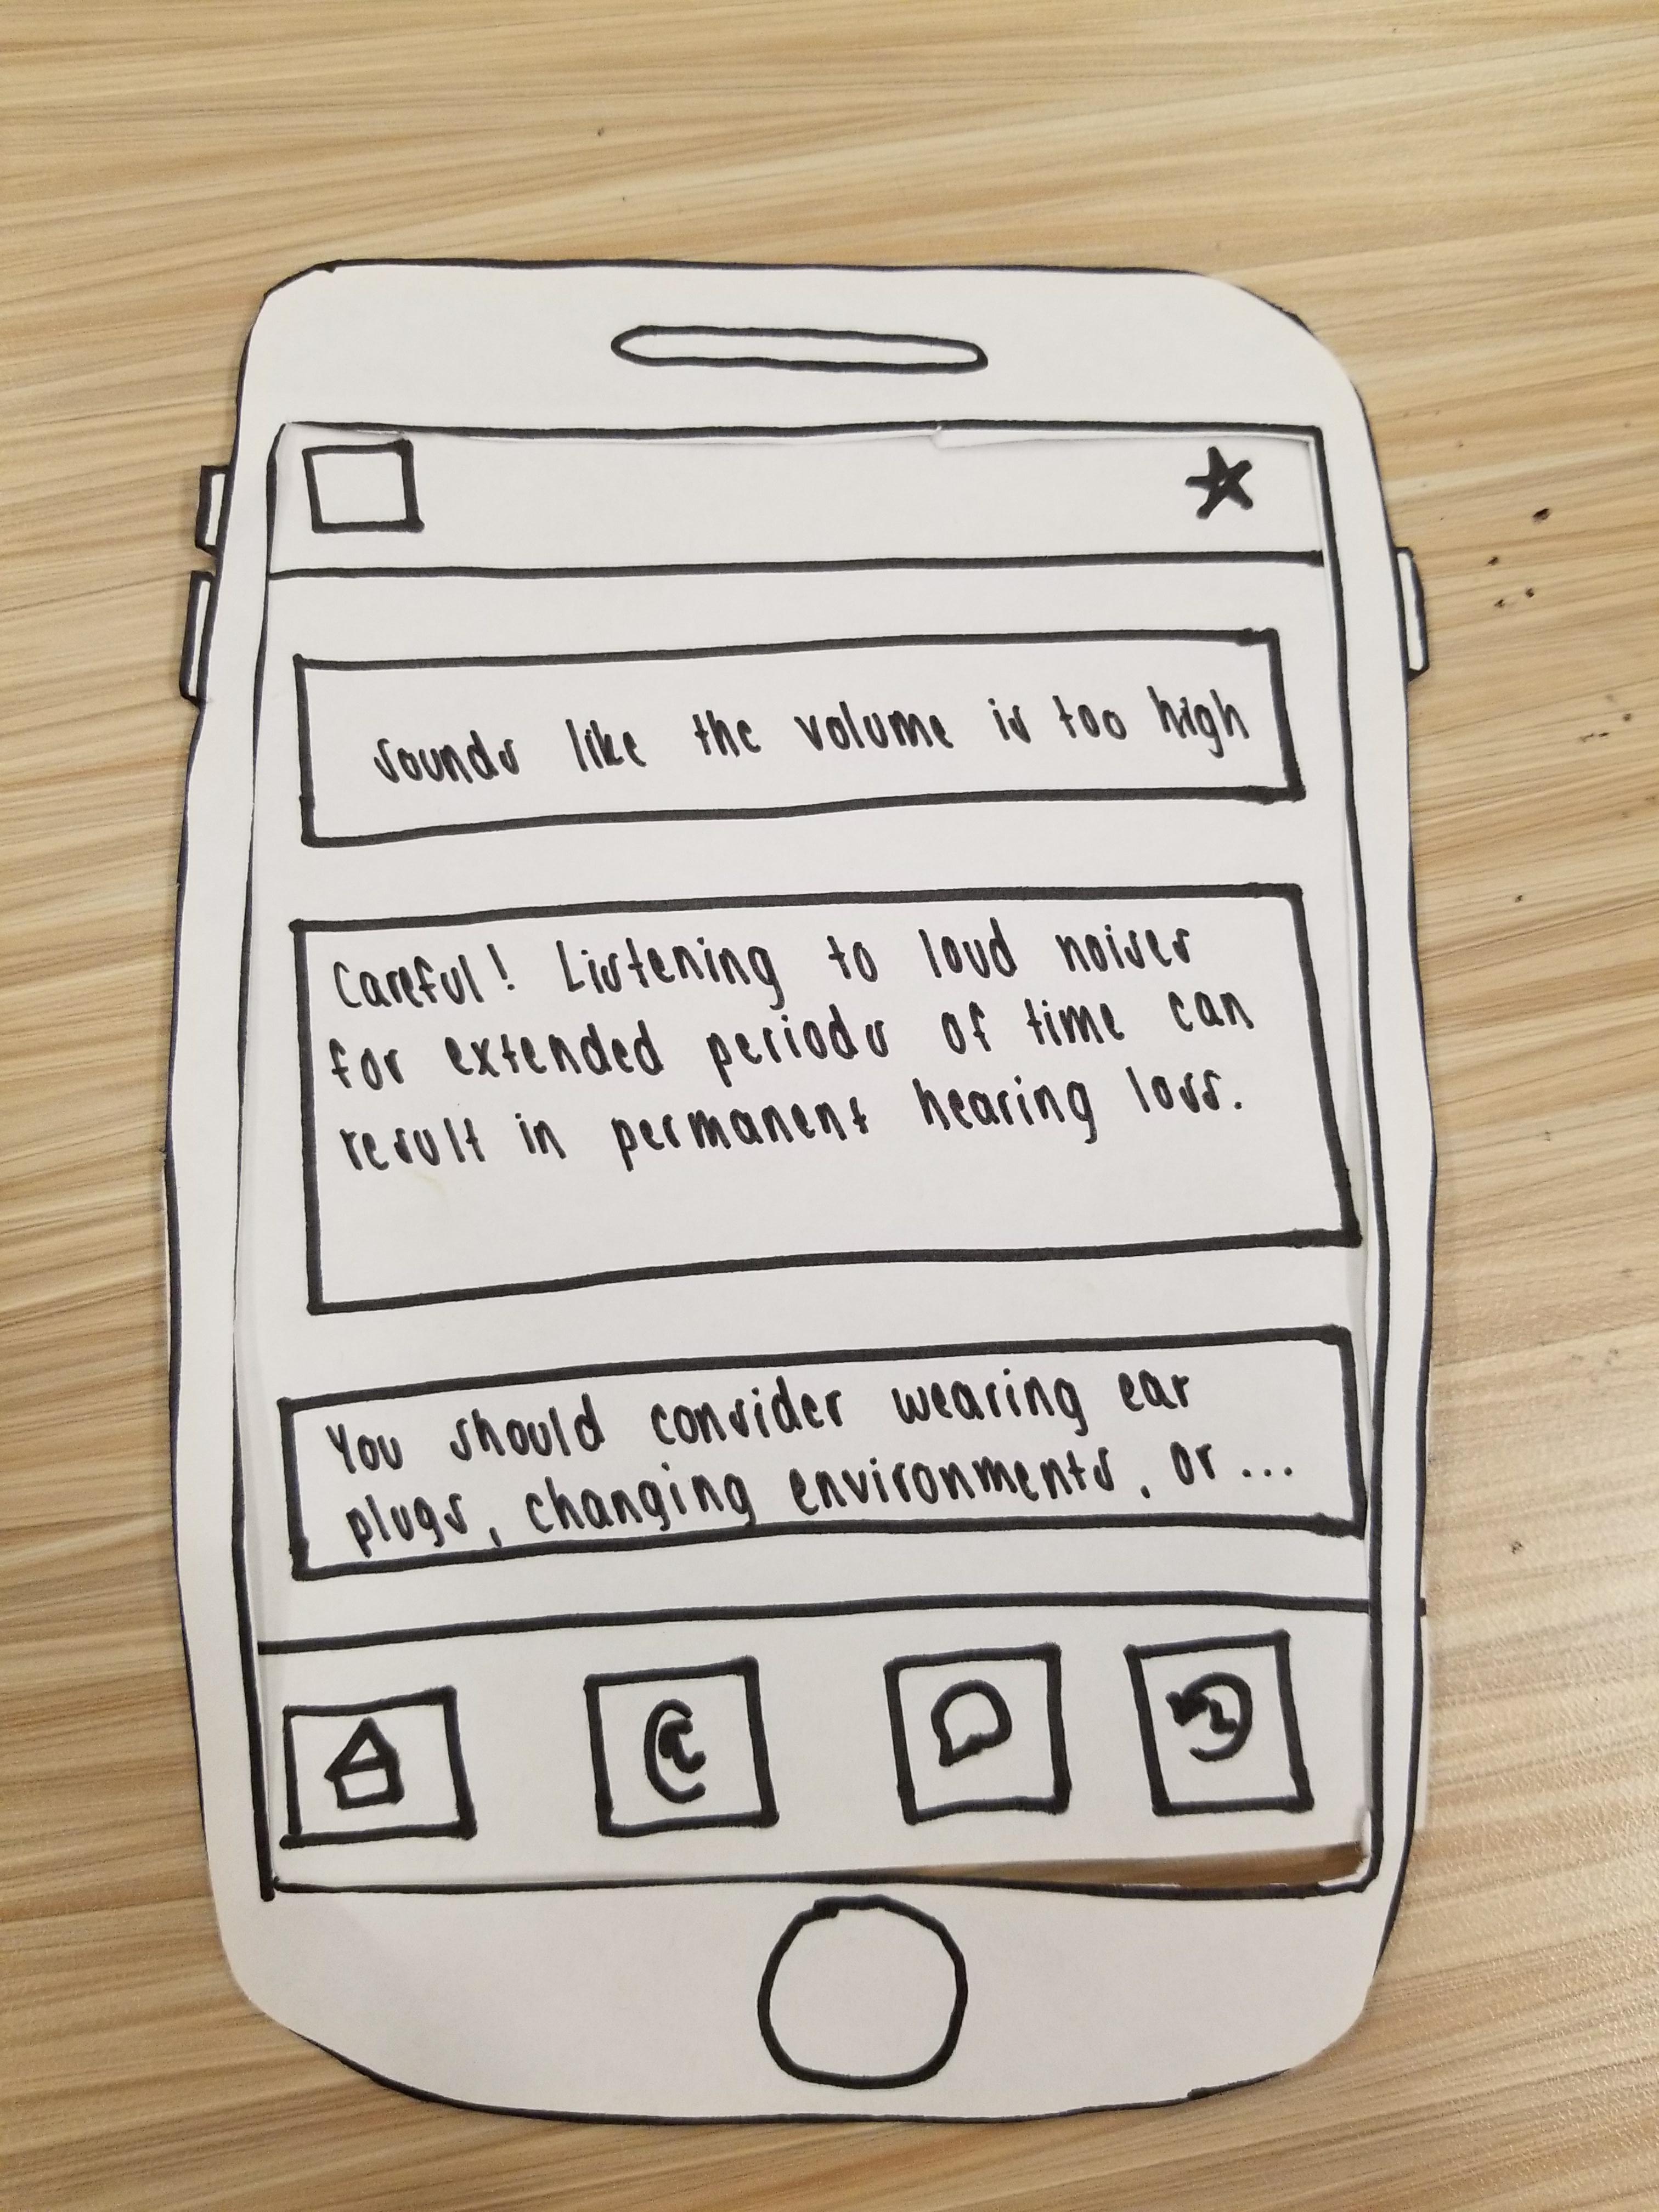 sounds like the volume is too high
Careful! Listening to loud noises
for extended periods of time can
result in permanent hearing loss.
You should consider wearing ear
plugs, changing environments, or...